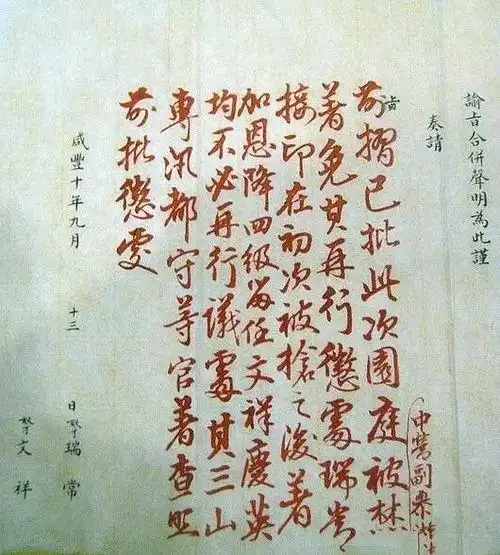 諭旨合併聲明為此謹
奏請
旨
前摺已批此次園庭被焚
中營副参
著免其再行懲處瑞常
接印在初次被搶之後著
加恩降四級留任文祥慶英
均不必再行議處其三山
專汛都守等官著查照
前批懲處
咸豐十年九月 十三 日奴才瑞常
奴才文祥